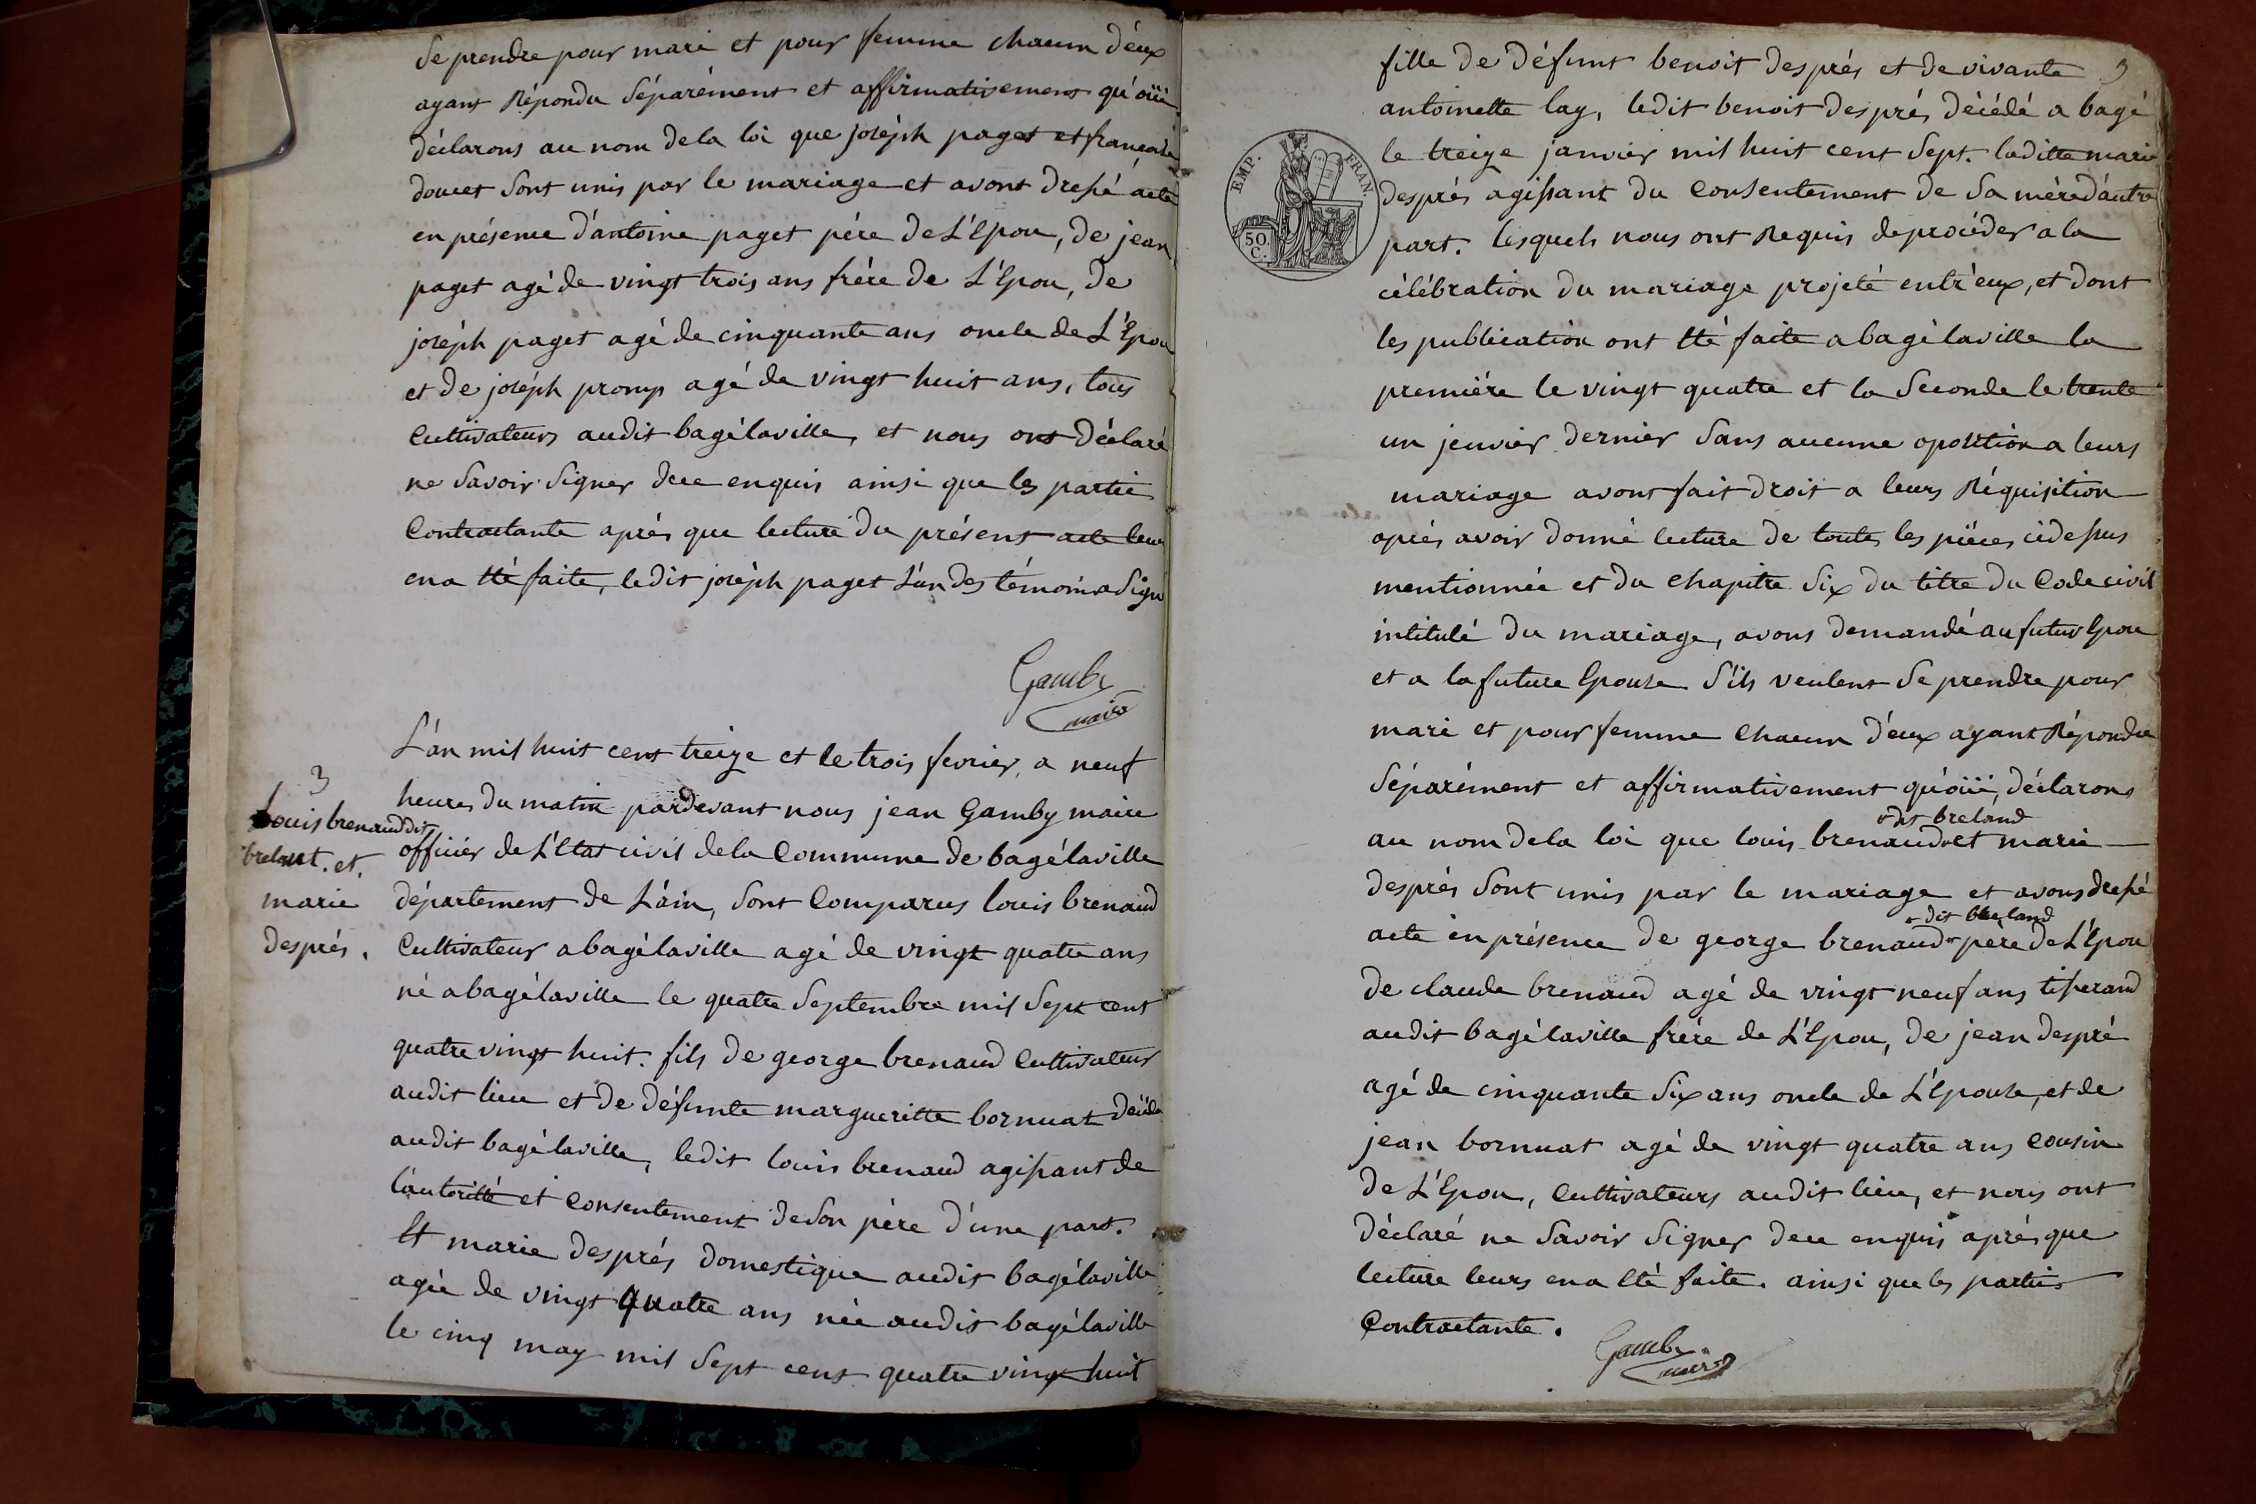 Se prendre pour mari et pour femme chacun d'eux
ayant Répondu Séparément et affirmativement qu'oüi
déclarons au nom de la loi que joséph paget et francoise
doucet Sont unis par le mariage et avons dressé acte
en présence d'antoine paget pére de L'Epou, de jean
paget agé de vingt trois ans frére de L'Epou, de
joséph paget agé de cinquante ans oncle de L'Epou
et de joséph promp agé de vingt huit ans, tous
Cultivateurs audit bagélaville, et nous ont déclaré
ne Savoir Signer dece enquis ainsi que les partie
Contractante aprés que lecture du présent acte leur
en a été faite, ledit joséph paget L'un des témoin a Signé
Gamby
maire
3
Louis brenaud dit
brelant. et.
marie
després.
L'an mil huit cent treize et le trois fevrier, a neuf
heures du matin pardevant nous jean Gamby maire
officier de L'Etat civil de la Commune de bagélaville
département de L'ain, Sont Comparus louis brenaud
Cultivateur a bagélaville agé de vingt quatre ans
né a bagélaville le quatre Septembre mil Sept cent
quatre vingt huit. fils de george brenaud Cultivateur
audit lieu et de défunte margueritte bornuat décédé
audit bagélaville, ledit louis brenaud agissant de
l'autorité et Consentement de Son pére d'une part.
Et marie després domestique audit bagélaville
agée de vingt quatre ans née audit bagélaville
le cinq may mil Sept cent quatre vingt huit
EMP. FRAN.
50
C.
fille de défunt benoit després et de vivante
antoinette lay, ledit benoit després décédé a bagé
le treize janvier mil huit cent Sept. laditte marie
després agissant du Consentement de Sa mére d'autre
part. lesquels nous ont Requis de procéder a la
célébration du mariage projeté entr'eux, et dont
les publication ont été faite a bagélaville la
premiére le vingt quatre et la Seconde le trente
un jenvier dernier Sans aucune oposition a leurs
mariage avons fait droit a leurs Réquisition
aprés avoir donné lecture de toutes les piéces cidessus
mentionnée et du chapitre Six du titre du Code civil
intitulé du mariage, avons demandé au futur Epou
et a la future Epouse S'ils veulent Se prendre pour
mari et pour femme chacun d'eux ayant Répondu
Séparément et affirmativement qu'oüi, déclarons
dit breland
au nom de la loi que louis brenaud et marie
després Sont unis par le mariage et avons dressé
dit breland
acte en présence de george brenaud pére de L'Epou
de claude brenaud agé de vingt neuf ans tisserand
audit bagélaville frére de L'Epou, de jean despré
agé de cinquante Six ans oncle de L'Epouse, et de
jean bornuat agé de vingt quatre ans Cousin
de L'Epou, Cultivateurs audit lieu, et nous ont
déclaré ne Savoir Signer dece enquis aprés que
lecture leurs en a été faite. ainsi que les parties
Contractante.
Gamby
maire